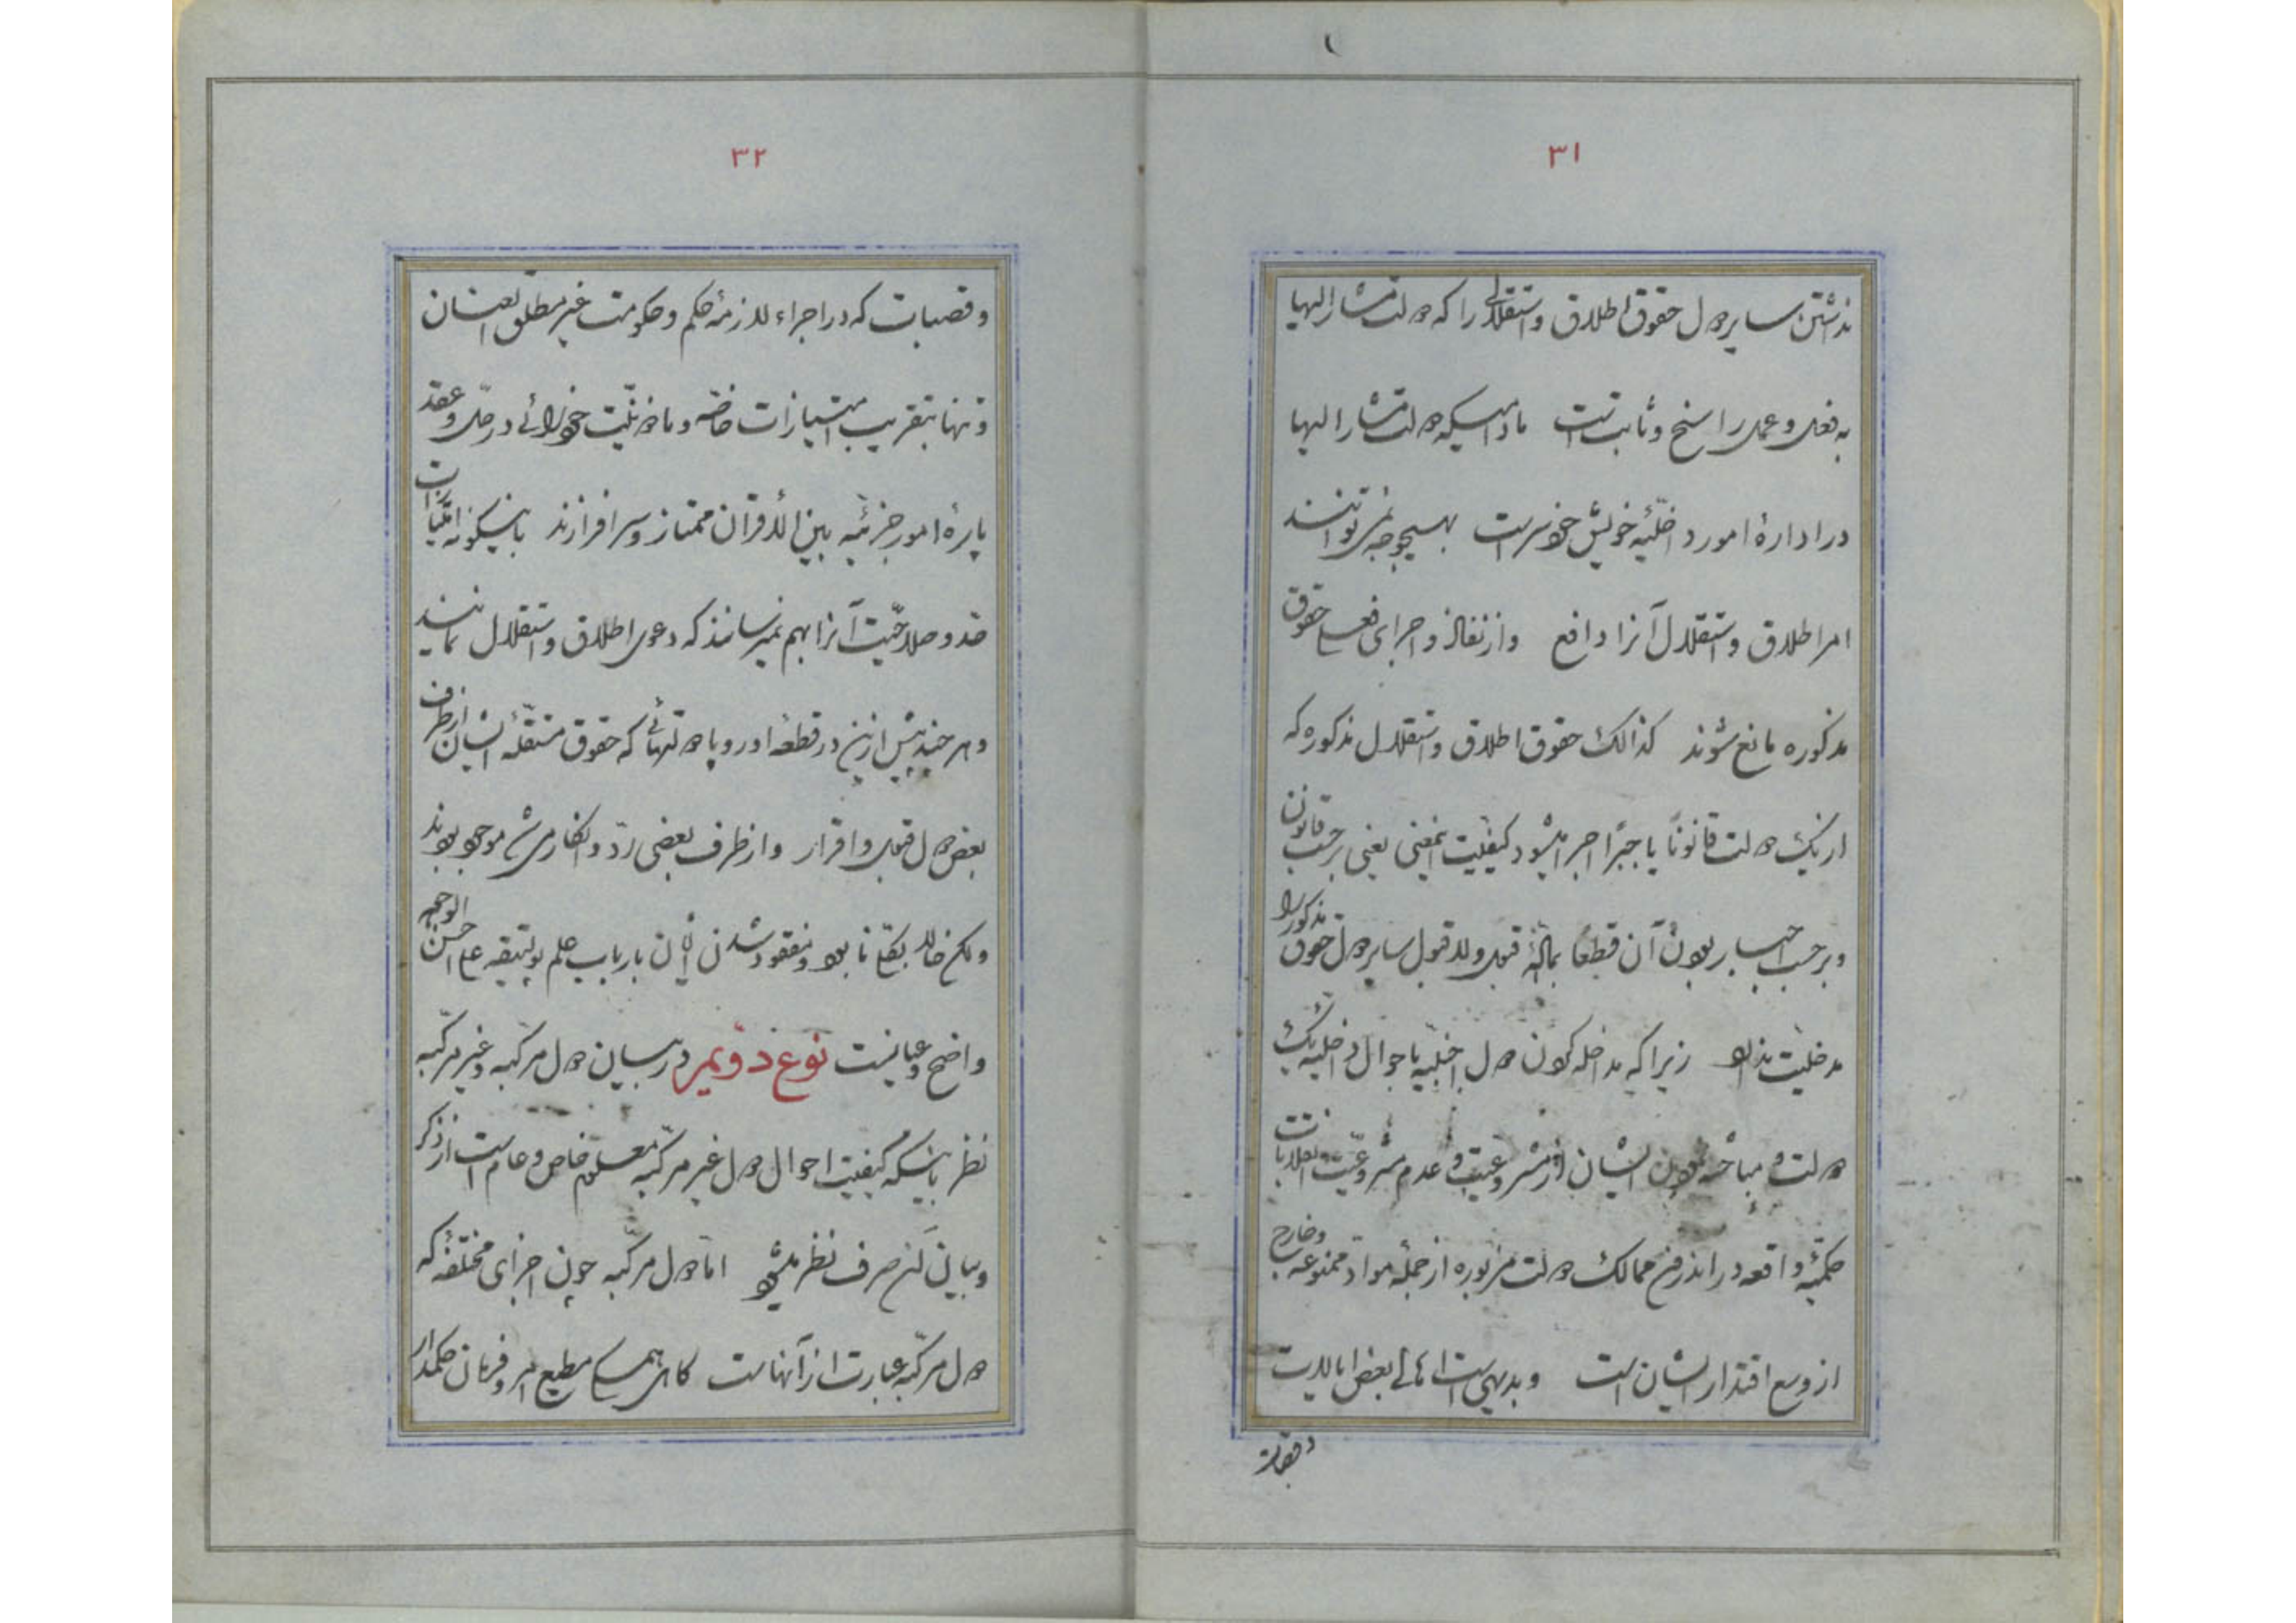 ۳۱
نداشتن سایر دول حقوق اطلاق و استقلالی را که دولت مشار الیها
به فعل و عمل راسخ و ثابت است مادامیکه دولت مشار الیها
در ادارهٔ امور داخلیّهٔ خویش خودسر است بهیچوجه نمیتوانند
امر اطلاق و استقلال آنرا دافع و از نفاذ و اجرای فعلی حقوق
مذکوره مانع شوند کذالک حقوق اطلاق و استقلال مذکوره که
از یک دولت قانوناً یا جبراً اجرا میشود کیفیّت اینمعنی یعنی برحسب قانون
و برحسب اجبار بودن آن قطعاً بمادّهٔ قبول و لا قبول سایر دول حقوق مذکور را
مدخلیّت ندارد زیرا که مداخله کردن دول اجنبیّه باحوال داخلیّه یک
دولت و مباحثه نمودن ایشان از مشروعیّت و عدم مشروعیّت انقلابات
حکمیّهٔ واقعه در اندرون ممالک دولت مزبوره از جملهٔ مواد ممنوعه و خارج
از وسع اقتدار ایشان است و بدیهی است اهالی بعض ایالات
و قصبات
۳۲
و قصبات که در اجراء لازمهٔ حکم و حکومت غیر مطلق العنان
و تنها بتقریب امتیازات خاصّه و ماذونیّت خودرائی در حل و عقد
پارهٔ امور جزئیّه بین الاقران ممتاز و سرافرازند باینگونه امتیازات
حد و صلاحیّت آنرا بهم نمیرسانند که دعوی اطلاق و استقلال نمایند
و هر چند پیش ازین در قطعهٔ اوروپا دولتهائی که حقوق مستقلّهٔ ایشان از طرف
بعض دول قبول و اقرار و از طرف بعضی ردّ و انکار می شد موجود بودند
ولکن حالا بکلّی نابود و مفقود شدن شان بارباب علم پولتیقه علی احسن الوجه
واضح و عیانست نوع دویم در بیان دول مرکّبه و غیر مرکّبه
نظر باینکه کیفیّت احوال دول غیر مرکّبه معلوم خاص و عام است از ذکر
و بیان آن صرف نظر میشود امّا دول مرکّبه چون اجزای مختلفه که
دول مرکّبه عبارت از آنهاست گاهی همگی مطیع امر و فرمان حکمدار